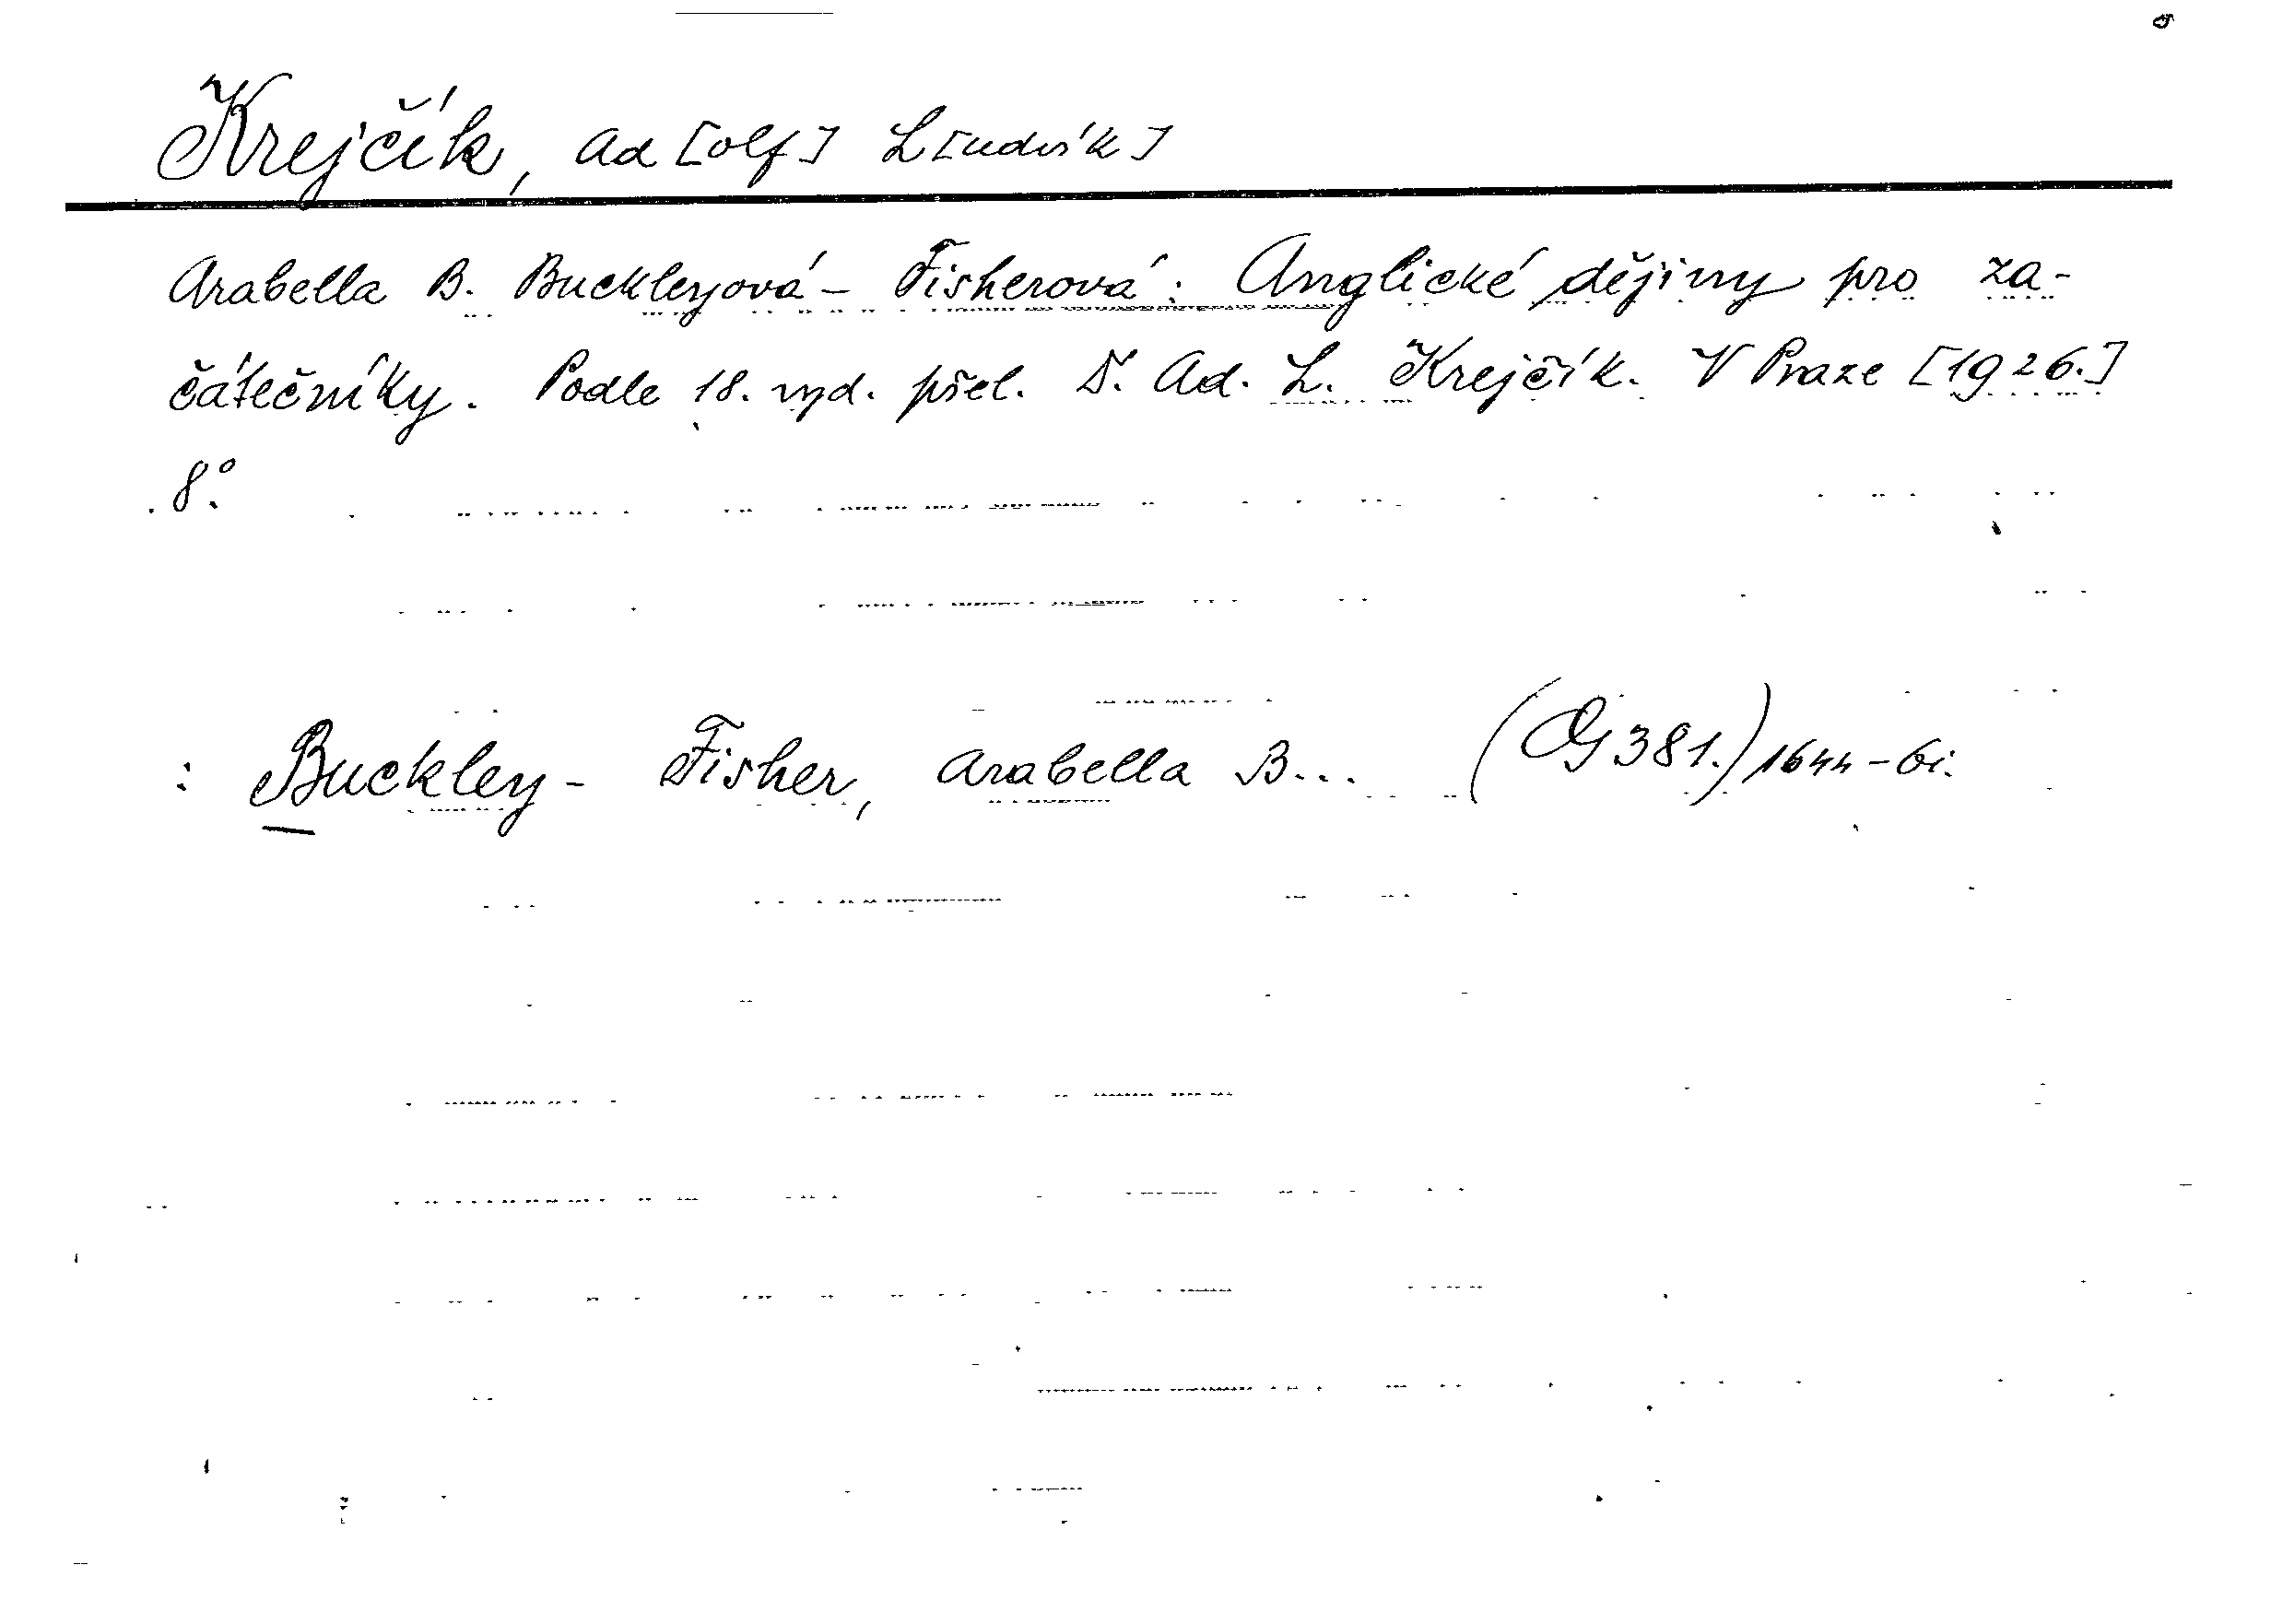 Krejčík, Ad[olf] L[udvík]
Arabella B. Buckleyová - Fisherová: Anglické dějiny pro za-
čátečníky. Podle 18. vyd. přel. Dr. Ad. L. Krejčík. V Praze [1926.]
8°.
: Buckley - Fisher, Arabella B... (G 381.) 1644-bi.